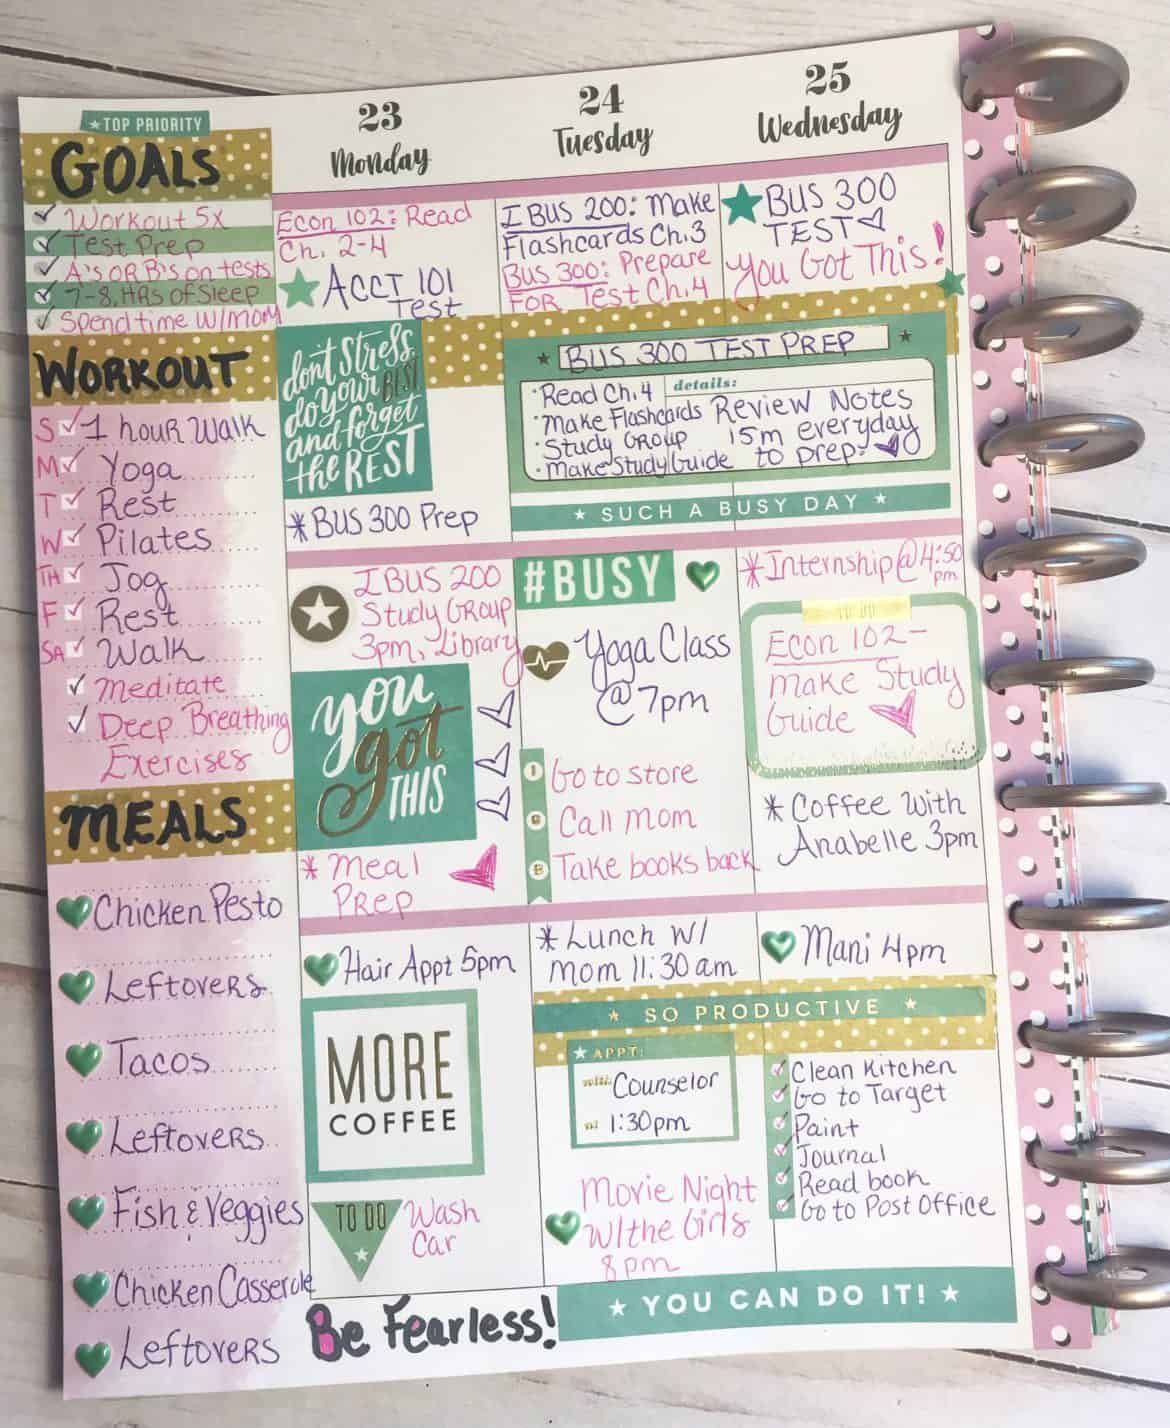 ★TOP PRIORITY
GOALS
Workout 5x
Test Prep
A's OR B's on tests
7-8 HRS of Sleep
Spend time w/mom
WORKOUT
S 1 hour Walk
M Yoga
T Rest
W Pilates
TH Jog
F Rest
SA Walk
Meditate
Deep Breathing
Exercises
MEALS
Chicken Pesto
Leftovers
Tacos
Leftovers
Fish & Veggies
Chicken Casserole
Leftovers
23
Monday
Econ 102: Read
Ch. 2-4
ACCT 101
Test
don't Stress
do your BEST
and forget
the REST
*BUS 300 Prep
I BUS 200
Study Group
3pm, Library
you
got
THIS
* Meal
Prep
Hair Appt 5pm
MORE
COFFEE
TO DO
Wash
Car
Be Fearless!
24
Tuesday
I BUS 200: Make
Flashcards Ch.3
BUS 300: Prepare
FOR Test Ch.4
BUS 300 TEST PREP
details:
• Read Ch. 4
• Make Flashcards
• Study Group
• Make Study Guide
Review Notes
15m everyday
to prep.
★ SUCH A BUSY DAY ★
#BUSY
Yoga Class
@ 7pm
Go to store
Call Mom
Take books back
* Lunch w/
mom 11:30 am
★ SO PRODUCTIVE ★
★ APPT:
with: Counselor
at: 1:30pm
Movie Night
w/the Girls
8pm
★ YOU CAN DO IT! ★
25
Wednesday
BUS 300
TEST
You Got This!
*Internship @ 4:50
pm
TO DO
Econ 102-
make Study
Guide
* Coffee with
Anabelle 3pm
Mani 4pm
Clean Kitchen
Go to Target
Paint
Journal
Read book
Go to Post Office